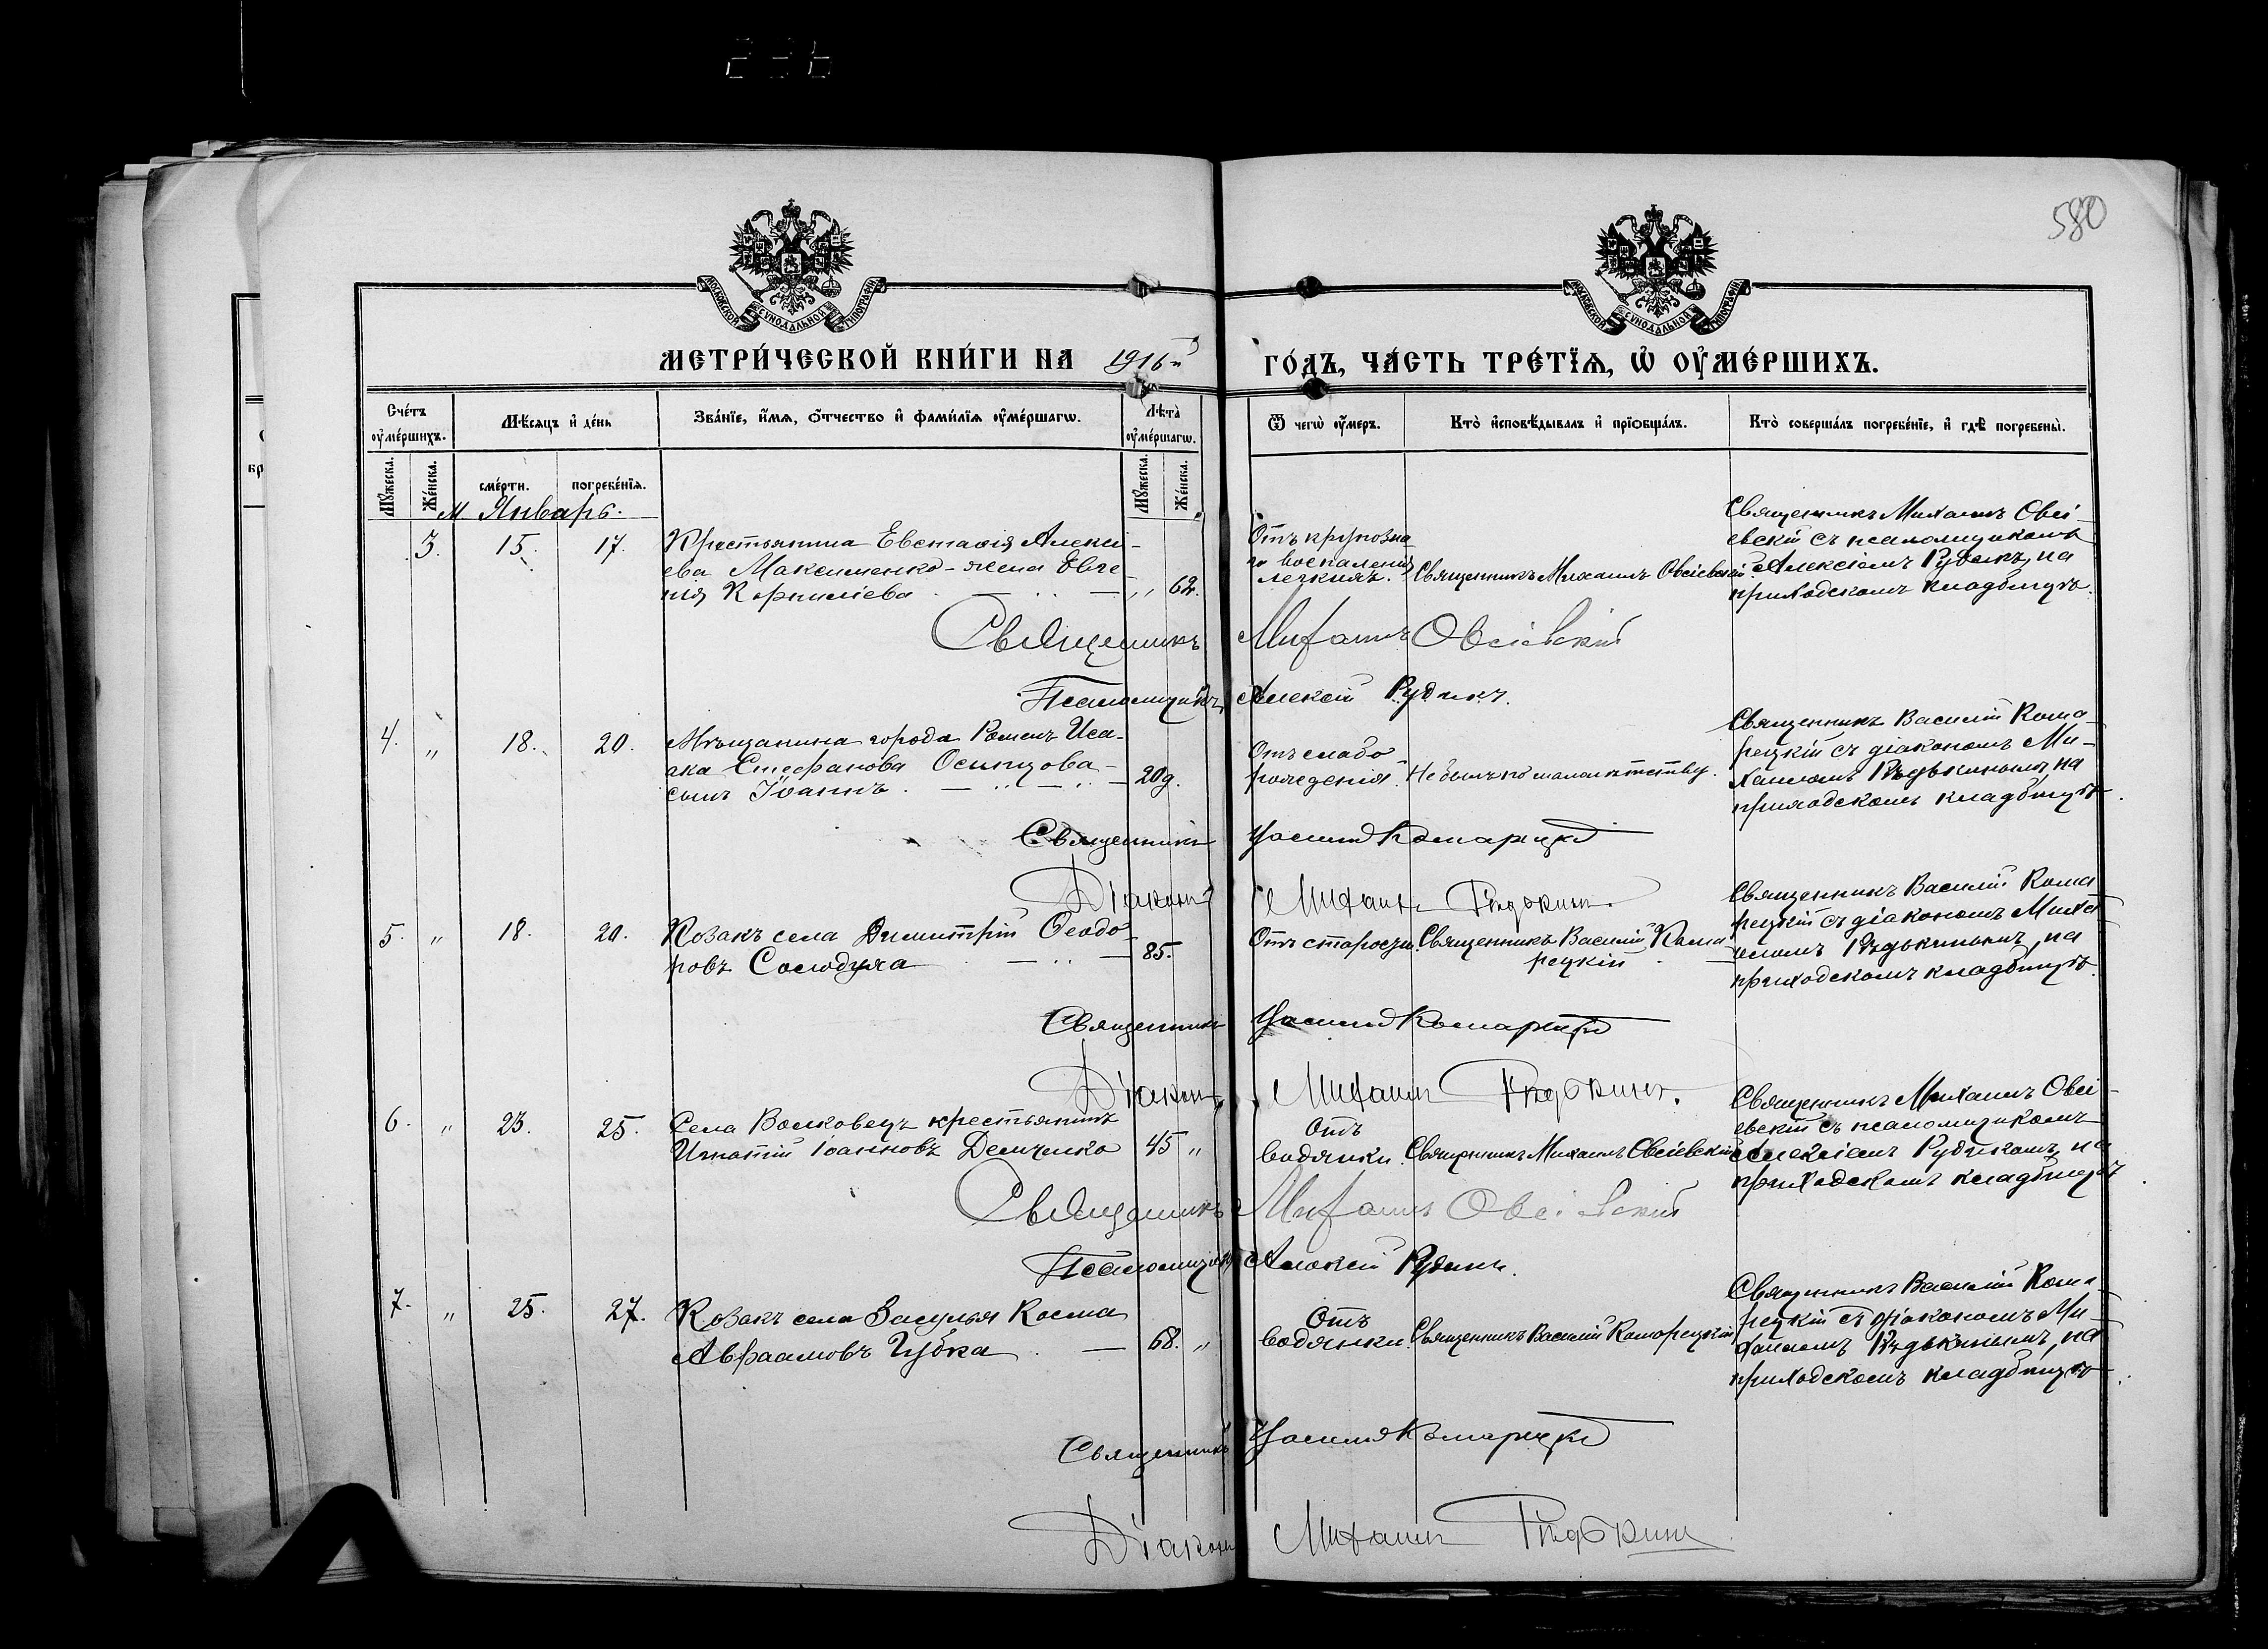 580
МОСКОВСКОЙ СѴНОДАЛЬНОЙ ТИПОГРАФІИ
МОСКОВСКОЙ СѴНОДАЛЬНОЙ ТИПОГРАФІИ
МЕТРИ́ЧЕСКОЙ КНИ́ГИ НА 1916-й ГО́ДЪ, ЧА́СТЬ ТРЕ́ТЇѦ, Ѡ҆ ОУ҆МЕ́РШИХЪ.
Сче́тъ оу҆ме́ршихъ.
Мѣ́сяцъ и҆ де́нь
Зва́нїе, и҆́мѧ, ѻ҆́тчество и҆ фами́лїѧ оу҆ме́ршагѡ.
Лѣ́та̀ оу҆ме́ршагѡ.
Ѿ чегѡ̀ оу҆́меръ.
Кто̀ и҆сповѣ́дывалъ и҆ прїѻбща́лъ.
Кто̀ соверша́лъ погребе́нїе, и҆ гдѣ̀ погребены̀.
Мꙋ́жеска.
Же́нска.
сме́рти.
погребе́нїѧ.
Мꙋ́жеска.
Же́нска.
М Январь.
3. 15. 17. Крестьянина Евстафія Алексі-
ева Максименко - жена Евге-
нія Корниліева 62.
Отъ крупозна
го воспаленія
легкихъ.
Священникъ Михаилъ Овсіевскій.
Священникъ Михаилъ Овсі-
евскій съ псаломщикомъ
Алексіемъ Рудикъ, на
приходскомъ кладбищѣ.
Священникъ Михаилъ Овсіевскій
Псаломщикъ Алексій Рудикъ.
4. " 18. 20. Мѣщанина города Роменъ Иса-
ака Стефанова Осипцова -
сынъ Іоаннъ. 20д.
Отъ слабо
рожденія.
Не былъ по малолѣтству.
Священникъ Василій Кома-
рецкій съ діакономъ Ми-
хаиломъ Рѣдькинымъ на
приходскомъ кладбищѣ.
Священникъ Василій Комарецкій
Діаконъ Михаилъ Рѣдькинъ.
5. " 18. 20. Козакъ села Димитрій Ѳеодо-
ровъ Солодуха 85.
Отъ старости.
Священникъ Василій Кома-
рецкій
Священникъ Василій Кома
рецкій съ діакономъ Миха
иломъ Рѣдькинымъ, на
приходскомъ кладбищѣ.
Священникъ Василій Комарецкій
Діаконъ Михаилъ Рѣдькинъ.
6. " 23. 25. Села Волковецъ крестьянинъ
Игнатій Іоанновъ Демченко 45 "
Отъ
водянки.
Священникъ Михаилъ Овсіевскій
Священникъ Михаилъ Овсі-
евскій съ псаломщикомъ
Алексіемъ Рудикомъ, на
приходскомъ кладбищѣ
Священникъ Михаилъ Овсіевскій
Псаломщикъ Алексій Рудикъ.
7. " 25. 27. Козакъ села Засулья Косма
Авраамовъ Губка 68. "
Отъ
водянки.
Священникъ Василій Комарецкій
Священникъ Василій Кома-
рецкій съ діакономъ Ми-
хаиломъ Рѣдькинымъ, на
приходскомъ кладбищѣ.
Священникъ Василій Комарецкій
Діаконъ Михаилъ Рѣдькинъ